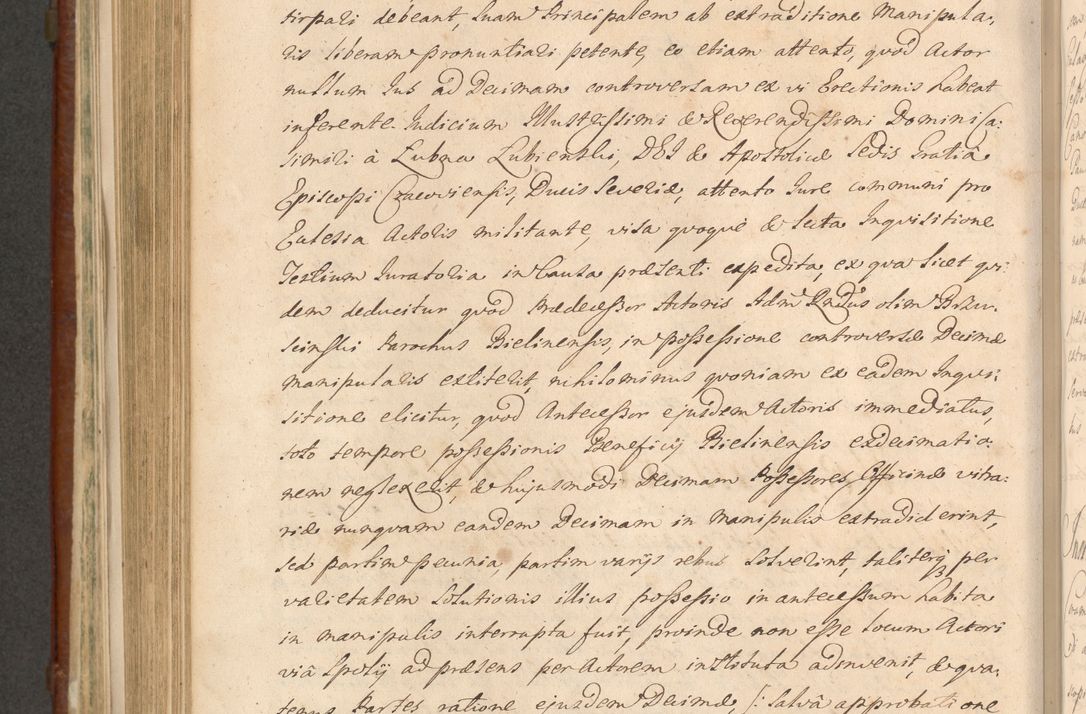 tirpari debeant, Suam Principalem ab extraditione Manipula,
ris liberam pronuntiari petente, eo etiam attento, quod Actor
nullum Jus ad Decimam controversam ex vi Erectionis habeat
inferente. Judicium Illustrissimi & Reverendissimi Domini Ca:
simiri à Lubna Lubienski, DEI & Apostolicæ Sedis Gratiâ
Episcopi Cracoviensis, Ducis Severiæ, attento Jure communi pro
Ecclesia Actoris militante, visa quoque & lecta Inquisitione
Testium Juratoria in Causa præsenti expedita, ex qva licet qvi:
dem deducitur quod Prædecessor Actoris Admd Rndus olim Brzu,
scinski Parochus Bielinensis, in possessione controversæ Decimæ
manipularis extiterit, nihilominus qvoniam ex eadem Inqvi,
sitione elicitur, quod Antecessor ejusdem Actoris immediatus,
toto tempore possessionis Beneficij Bielinensis exdecimatio:
nem neglexerit, & hujusmodi Decimam Possessores, Officinæ vitra:
riæ nunqvam eandem Decimam in Manipulis extradiderint,
sed partim pecunia, partim varijs rebus solverint, taliterq3 per
varietatem Solutionis illius possessio in antecessum habita
in manipulis interrupta fuit, proinde non esse locum Actori
viâ Spolij ad præsens per Actorem instituta adinvenit, & qva:
tenus Partes ratione ejusdem Decimæ, /: salvâ approbatione